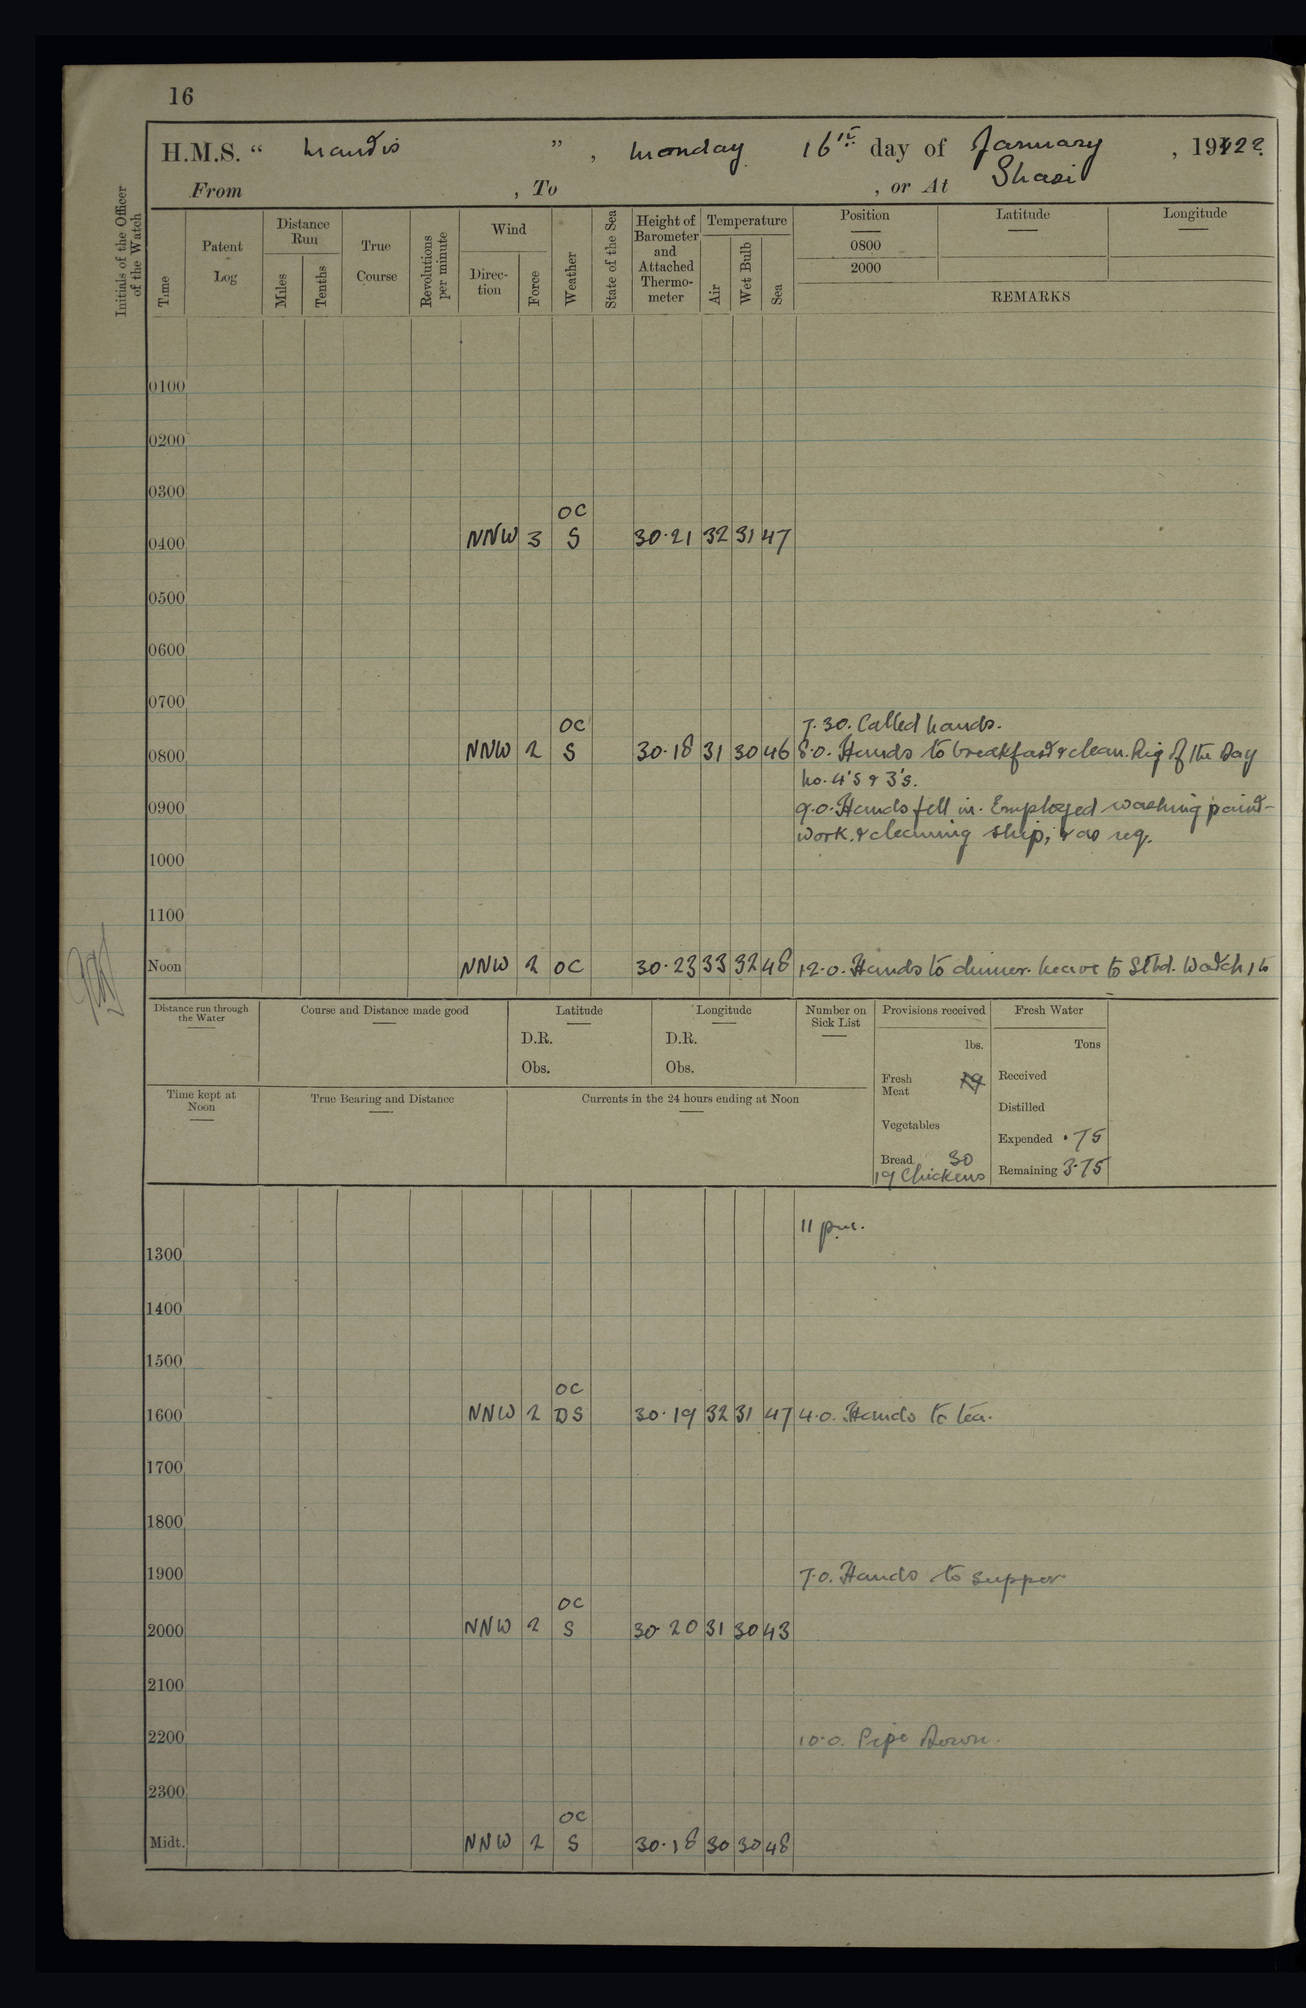 16
H.M.S. “ Mantis ” , Monday 16th day of January , 1922
From , To , or At Shasi
Initials of the Officer of the Watch
Time
Patent Log
Distance Run
Miles
Tenths
True Course
Revolutions per minute
Wind
Direction
Force
Weather
State of the Sea
Height of Barometer and Attached Thermometer
Temperature
Air
Wet Bulb
Sea
Position
Latitude
Longitude
0800
2000
REMARKS
0100
0200
0300
OC
0400 NNW 3 S 30·21 32 31 47
0500
0600
0700
OC 7.30. Called hands.
0800 NNW 2 S 30·18 31 30 46 8.0. Hands to breakfast & clean. Rig of the Day
No. 4's & 3's.
0900 9.0. Hands fell in. Employed washing paint-
work, & cleaning ship, & as req.
1000
1100
Noon NNW 2 OC 30·23 33 32 48 12.0. Hands to dinner. Leave to Stbd. Watch, to
Distance run through the Water
Course and Distance made good
Latitude
D.R.
Obs.
Longitude
D.R.
Obs.
Number on Sick List
Provisions received
lbs.
Fresh Meat 19
Vegetables
Bread 30
19 Chickens
Fresh Water
Tons
Received
Distilled
Expended ·75
Remaining 3·75
Time kept at Noon
True Bearing and Distance
Currents in the 24 hours ending at Noon
11 p.m.
1300
1400
1500
OC
1600 NNW 2 DS 30·19 32 31 47 4.0. Hands to tea.
1700
1800
1900 7.0. Hands to supper
OC
2000 NNW 2 S 30·20 31 30 43
2100
2200 10.0. Pipe Down.
2300
OC
Midt. NNW 2 S 30·18 30 30 48